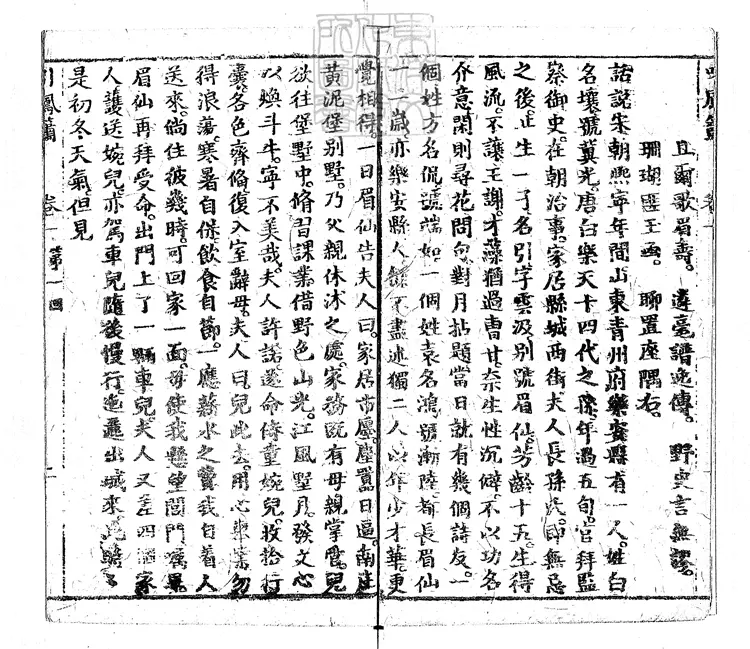 且爾歌眉壽。 遺毫譜逸傳。 野史言無謬。
珊瑚匣玉函。 聊置座隅右。
話說宋朝熙寧年間山東青州府樂安縣有一人。姓白
名壤。號冀光。唐白樂天十四代之孫。年過五旬。官拜監
察御史。在朝治事。家居縣城西街。夫人長孫氏。即無忌
之後。止生一子名引字雲汲。別號眉仙。芳齡十五。生得
風流。不讓王謝。才藻猶過曹甘。奈生性沉僻。不以功名
介意。閑則尋花問句。對月拈題。當日就有幾個詩友。一
個姓方名侃號端如一個姓袁名鴻。號漸陸。都長眉仙
一二歲。亦樂安縣人 不盡述獨二人以年少才華更
覺相得。一日眉仙告夫人曰。家居市廛。塵囂日逼。南庄
黃泥堡別墅。乃父親休沐之處。家務既有母親掌管。兒
欲往堡墅中。脩習課業。借野色山光。江風墅月。發文心
以煥斗牛。寧不美哉。夫人許諾。遂命脩童婉兒。收拾行
囊。各色齊備。復入室辭母。夫人曰。兒此去。用心舉業勿
得浪蕩。寒暑自保。飲食自節。一應薪水之費。我自着人
送來。倘住彼幾時。可回家一面。毋使我懸望閭門。囑畢。
眉仙再拜受命。出門上了一輛車兒。夫人又差四個家
人護送婉兒。亦駕車兒隨後慢行。迤邐出城來。此時
是初冬天氣。但見
引鳳簫 卷一 第一回